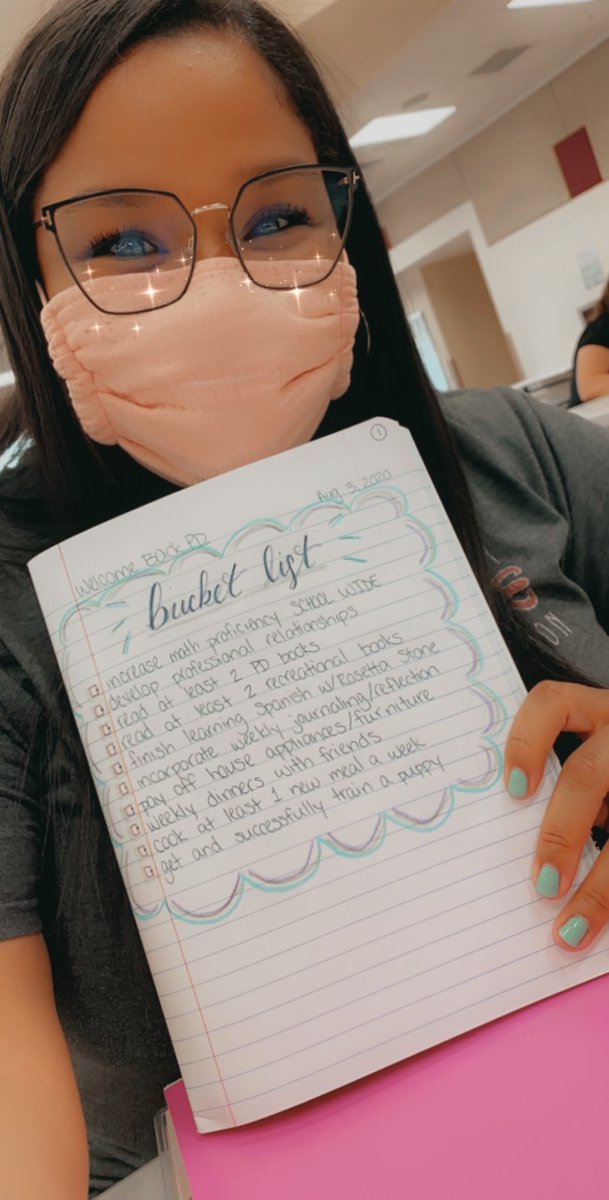 1
Aug 3, 2020
Welcome Back PD
bucket list
increase math proficiency SCHOOL WIDE
develop professional relationships
read at least 2 PD books
read at least 2 recreational books
finish learning Spanish w/Rosetta Stone
incorporate weekly journaling/reflection
pay off house appliances/furniture
weekly dinners with friends
cook at least 1 new meal a week
get and successfully train a puppy